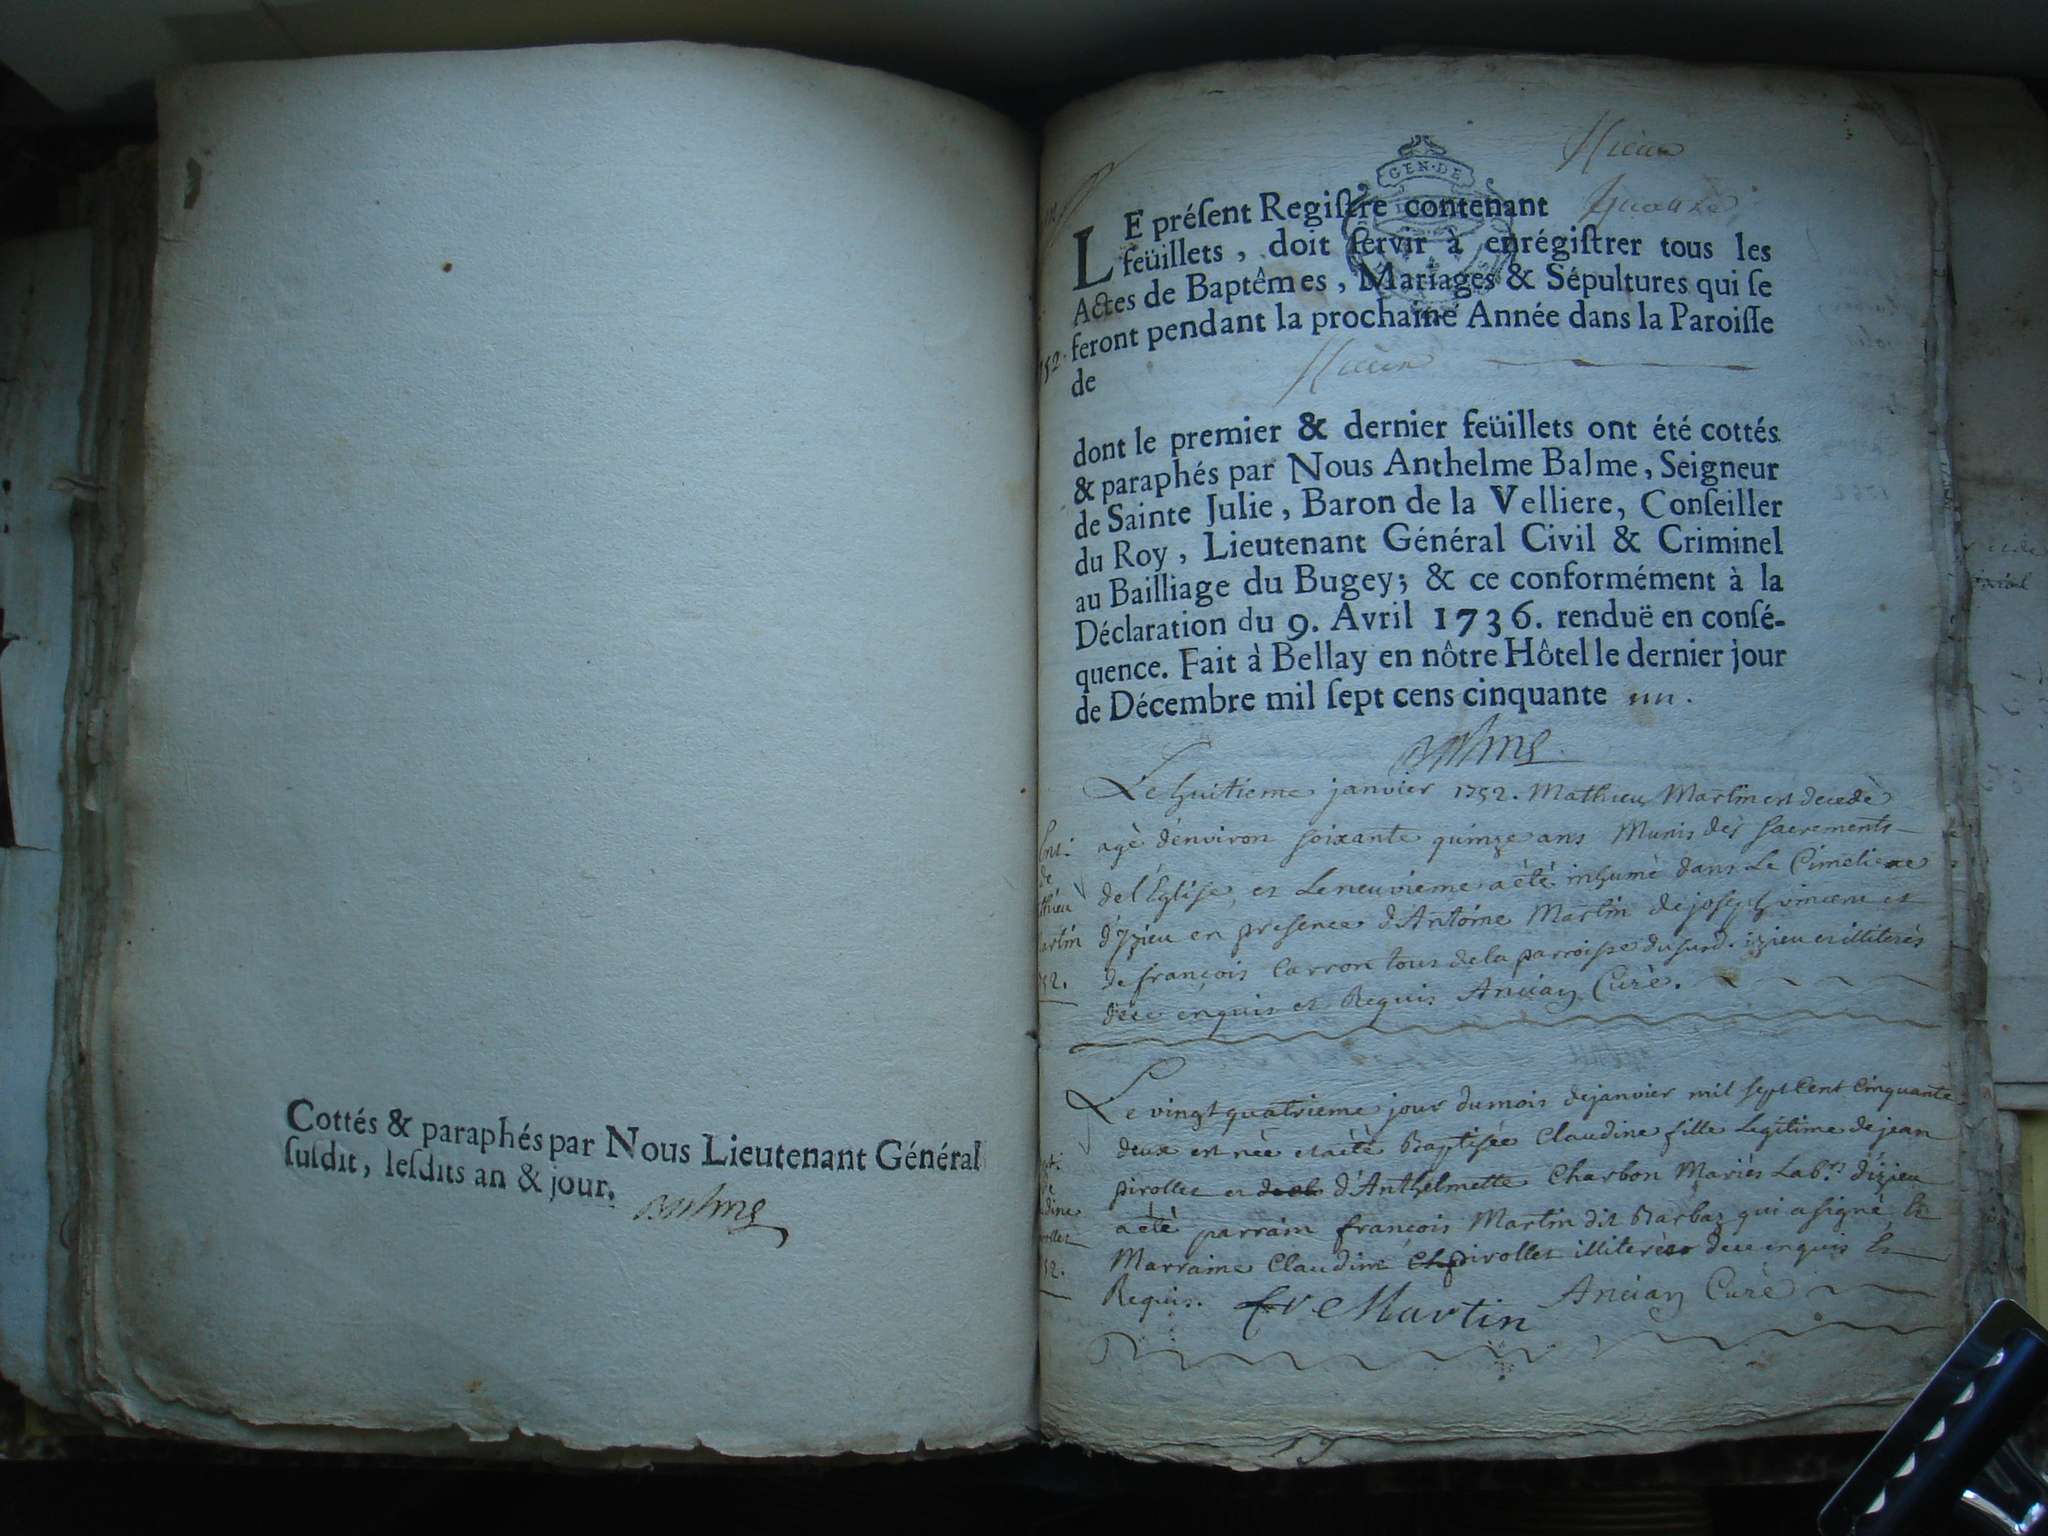 Cottés & paraphés par Nous Lieutenant Général
ſuſdit, leſdits an & jour.
Balme
GEN·DE
LE préſent Regiſtre contenant
feüillets, doit ſervir à enrégiſtrer tous les
Actes de Baptêmes, Mariages & Sépultures qui ſe
feront pendant la prochaine Année dans la Paroiſſe
de
dont le premier & dernier feüillets ont été cottés
& paraphés par Nous Anthelme Balme, Seigneur
de Sainte Julie, Baron de la Velliere, Conſeiller
du Roy, Lieutenant Général Civil & Criminel
au Bailliage du Bugey; & ce conformément à la
Déclaration du 9. Avril 1736. renduë en conſé-
quence. Fait à Bellay en nôtre Hôtel le dernier jour
de Décembre mil ſept cens cinquante un.
Balme
Le huitieme janvier 1752. Mathieu Martin est decedè
agè d'environ soixante quinze ans Munis dès sacrements
de l'Eglise, et le neuvieme a étè inhumè dans Le Cimetiere
d'Izieu en presence d'Antoine Martin de joseph vincent et
de françois Carron tous de la parroisse du susd. izieu et illiterès
de ce enquis et Requis Ancian Curè.
Le vingt quatrieme jour du mois de janvier mil sept Cent Cinquante
deux est nèe et a étè Baptisèe Claudine fille Legitime de jean
pirollet et d'Anthelmette Charbon Mariès Lab.rs d'izieu
a étè parrain françois Martin dit Barbaz qui a signè Et
Marraine Claudine pirollet illiterès de ce enquis Et
Requis. Martin Ancian Curè